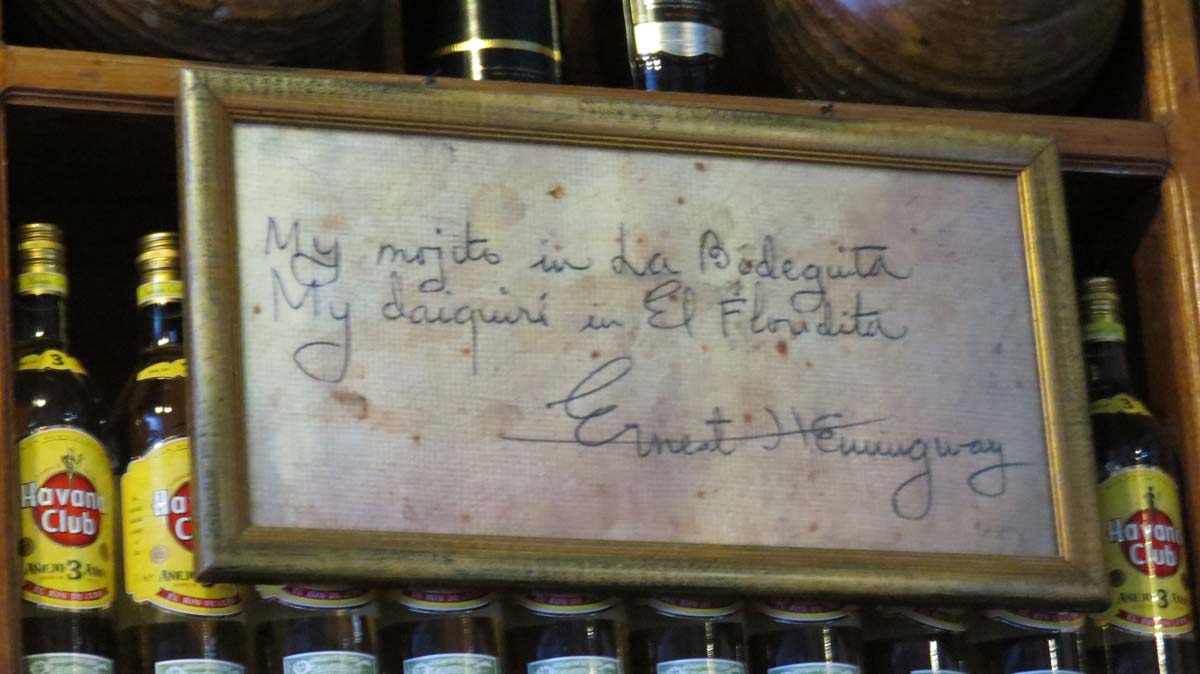 My mojito in La Bodeguita
My daiquiri in El Floridita
Ernest Hemingway
3
Havana
Club
AÑEJO 3 AÑOS
EL RON DE CUBA
3
Ha
Cl
AÑEJO
EL RON DE CUBA
Havana
Club
3